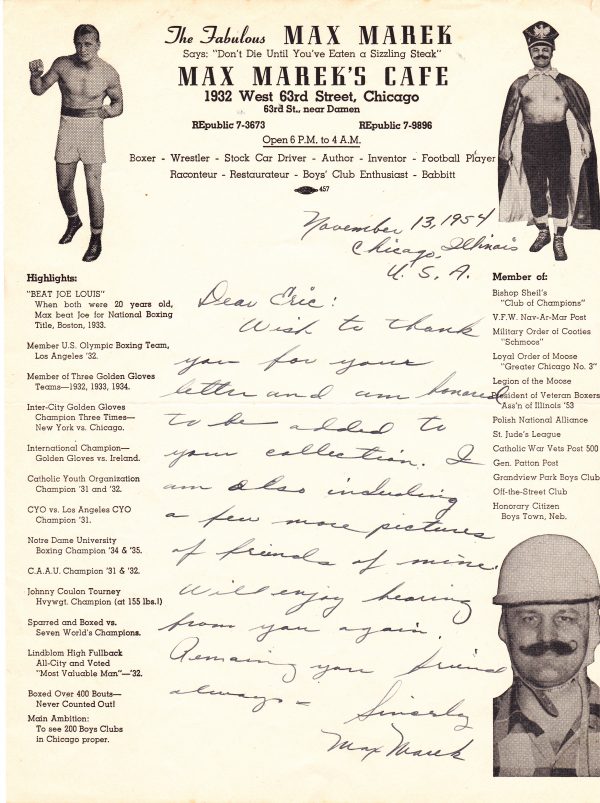 The Fabulous MAX MAREK
Says: "Don't Die Until You've Eaten a Sizzling Steak"
MAX MAREK'S CAFE
1932 West 63rd Street, Chicago
63rd St., near Damen
REpublic 7-3673 REpublic 7-9896
Open 6 P.M. to 4 A.M.
Boxer - Wrestler - Stock Car Driver - Author - Inventor - Football Player
Raconteur - Restaurateur - Boys' Club Enthusiast - Babbitt
457
November 13, 1954
Chicago, Illinois
U. S. A.
Dear Eric:
Wish to thank
you for your
letter and am honored
to be added to
your collection. I
am also including
a few more pictures
of friends of mine.
Will enjoy hearing
from you again.
Remaing you friend
always -
Sincerly
Max Marek
Highlights:
"BEAT JOE LOUIS"
When both were 20 years old,
Max beat Joe for National Boxing
Title, Boston, 1933.
Member U.S. Olympic Boxing Team,
Los Angeles '32.
Member of Three Golden Gloves
Teams—1932, 1933, 1934.
Inter-City Golden Gloves
Champion Three Times—
New York vs. Chicago.
International Champion—
Golden Gloves vs. Ireland.
Catholic Youth Organization
Champion '31 and '32.
CYO vs. Los Angeles CYO
Champion '31.
Notre Dame University
Boxing Champion '34 & '35.
C.A.A.U. Champion '31 & '32.
Johnny Coulon Tourney
Hvywgt. Champion (at 155 lbs.!)
Sparred and Boxed vs.
Seven World's Champions.
Lindblom High Fullback
All-City and Voted
"Most Valuable Man"—'32.
Boxed Over 400 Bouts—
Never Counted Out!
Main Ambition:
To see 200 Boys Clubs
in Chicago proper.
Member of:
Bishop Sheil's
"Club of Champions"
V.F.W. Nav-Ar-Mar Post
Military Order of Cooties
"Schmoos"
Loyal Order of Moose
"Greater Chicago No. 3"
Legion of the Moose
President of Veteran Boxers
Ass'n of Illinois '53
Polish National Alliance
St. Jude's League
Catholic War Vets Post 500
Gen. Patton Post
Grandview Park Boys Club
Off-the-Street Club
Honorary Citizen
Boys Town, Neb.